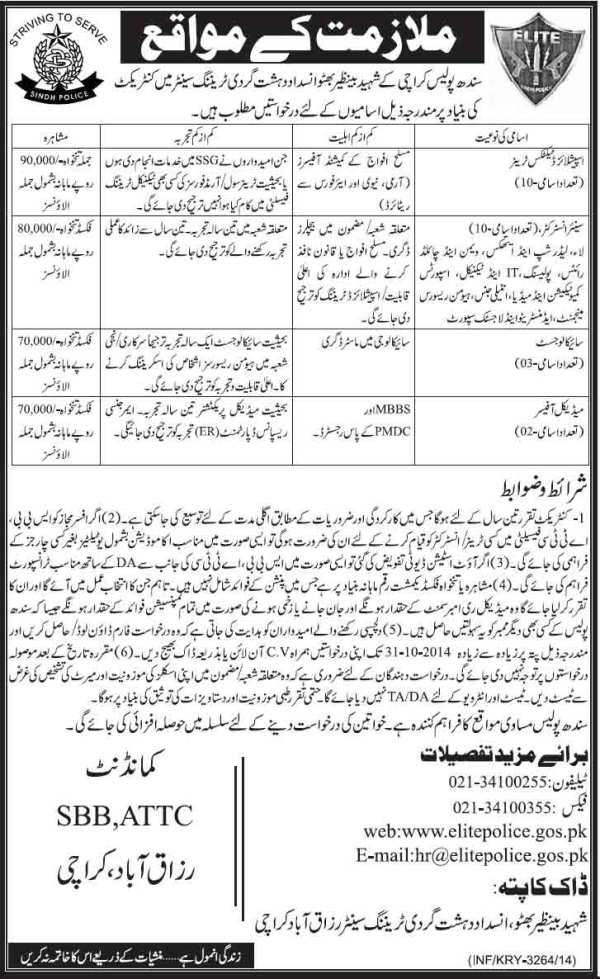 STRIVING TO SERVE
SINDH POLICE
ملازمت کے مواقع
ELITE
سندھ پولیس کراچی کے شہید بینظیر بھٹو انسداد دہشت گردی ٹریننگ سینٹر میں کنٹریکٹ
کی بنیاد پر مندرجہ ذیل اسامیوں کے لئے درخواستیں مطلوب ہیں۔
اسامی کی نوعیت
کم از کم اہلیت
کم از کم تجربہ
مشاہرہ
اسپیشلائزڈ ٹیکٹکس ٹرینر
(تعداد اسامی-10)
مسلح افواج کے کمیشنڈ آفیسرز
(آرمی، نیوی اور ایئر فورس سے
ریٹائرڈ)
جن امیدواروں نے SSG میں خدمات انجام دی ہوں
یا بحیثیت ٹرینر سول/آرمڈ فورسز کی کسی بھی ٹیکٹیکل ٹریننگ
فیسلٹی میں کام کیا ہو انہیں ترجیح دی جائے گی۔
جملہ تنخواہ -/90,000
روپے ماہانہ بشمول جملہ
الاؤنسز
سینئر انسٹرکٹر، (تعداد اسامی-10)
لاء، لیڈر شپ اینڈ ایتھکس، ویمن اینڈ چائلڈ
رائٹس، پولیسنگ، IT اینڈ ٹیکنیکل، اسپورٹس
کمیونیکیشن اینڈ میڈیا، انٹیلی جنس، ہیومن ریسورس
مینجمنٹ، ایڈمنسٹریٹو اینڈ لاجسٹک سپورٹ
متعلقہ شعبہ/مضمون میں بیچلرز
ڈگری۔ مسلح افواج یا قانون نافذ
کرنے والے ادارہ کی اعلیٰ
قابلیت/اسپیشلائزڈ ٹریننگ کو ترجیح
دی جائے گی۔
متعلقہ شعبہ میں تین سالہ تجربہ۔ تین سال سے زائد کا عملی
تجربہ رکھنے والے کو ترجیح دی جائے گی۔
فکسڈ تنخواہ -/80,000
روپے ماہانہ بشمول جملہ
الاؤنسز
سائیکالوجسٹ
(تعداد اسامی-03)
سائیکالوجی میں ماسٹر ڈگری
بحیثیت سائیکالوجسٹ ایک سالہ تجربہ ترجیحا سرکاری/نجی
شعبہ میں ہیومن ریسورسز اشخاص کی اسکریننگ کرنے
کا۔ اعلیٰ قابلیت و تجربہ کو ترجیح دی جائے گی۔
فکسڈ تنخواہ -/70,000
روپے ماہانہ بشمول جملہ
الاؤنسز
میڈیکل آفیسر
(تعداد اسامی-02)
MBBS اور
PMDC کے پاس رجسٹرڈ۔
بحیثیت میڈیکل پریکٹشنر تین سالہ تجربہ۔ ایمرجنسی
ریسپانس ڈپارٹمنٹ (ER) تجربہ کو ترجیح دی جائیگی۔
فکسڈ تنخواہ -/70,000
روپے ماہانہ بشمول جملہ
الاؤنسز
شرائط و ضوابط
1- کنٹریکٹ تقرر تین سال کے لئے ہوگا جس میں کارکردگی اور ضروریات کے مطابق اگلی مدت کے لئے توسیع کی جاسکتی ہے۔ (2) اگر افسر مجاز کو ایس بی بی،
اے ٹی سی فیسلٹی میں کسی ٹرینر/انسٹرکٹر کو قیام کرنے کے لئے ان کی ضرورت ہوگی تو ایسی صورت میں مناسب اکاموڈیشن بشمول یوٹیلیٹیز بغیر کسی چارجز کے
فراہمی کی جائے گی۔ (3) اگر آؤٹ اسٹیشن ڈیوٹی تفویض کی گئی تو ایسی صورت میں ایس بی بی، اے ٹی سی کی جانب سے DA کے ساتھ مناسب ٹرانسپورٹ
فراہم کی جائے گی۔ (4) مشاہرہ یا تنخواہ فکسڈ یکمشت رقم ماہانہ بنیاد پر ہے جس میں پنشن کے فوائد شامل نہیں ہیں۔ تاہم جن کا انتخاب عمل میں آئے گا اور ان کا
تقرر کیا جائے گا وہ میڈیکل ری امبرسمنٹ کے حقدار ہونگے اور جان جانے یا زخمی ہونے کی صورت میں تمام کمپنسیشن فوائد کے حقدار ہونگے جیسا کہ سندھ
پولیس کے کسی بھی دیگر ممبر کو یہ سہولتیں حاصل ہیں۔ (5) دلچسپی رکھنے والے امیدواران کو ہدایت کی جاتی ہے کہ وہ درخواست فارم ڈاؤن لوڈ/حاصل کریں اور
مندرجہ ذیل پتہ پر زیادہ سے زیادہ 31-10-2014 تک اپنی درخواستیں ہمراہ C.V آن لائن یا بذریعہ ڈاک بھیج دیں۔ (6) مقررہ تاریخ کے بعد موصولہ
درخواستوں پر توجہ نہیں دی جائے گی۔ درخواست دہندگان کے لئے ضروری ہے کہ وہ متعلقہ شعبہ/مضمون میں اپنی اسکلز کی موزونیت اور میرٹ کی تشخیص کی غرض
سے ٹیسٹ دیں۔ ٹیسٹ اور انٹرویو کے لئے TA/DA نہیں دیا جائے گا۔ حتمی تقرر طبی موزونیت اور دستاویزات کی توثیق کی بنیاد پر ہوگا۔
سندھ پولیس مساوی مواقع کا فراہم کنندہ ہے۔ خواتین کی درخواست دینے کے لئے سلسلہ میں حوصلہ افزائی کی جائے گی۔
برائے مزید تفصیلات
ٹیلیفون: 021-34100255
فیکس: 021-34100355
web:www.elitepolice.gos.pk
E-mail:hr@elitepolice.gos.pk
ڈاک کا پتہ:
شہید بینظیر بھٹو، انسداد دہشت گردی ٹریننگ سینٹر رزاق آباد کراچی
کمانڈنٹ
SBB,ATTC
رزاق آباد، کراچی
(INF/KRY-3264/14)
زندگی انمول ہے.....منشیات کے ذریعے اس کا خاتمہ نہ کریں